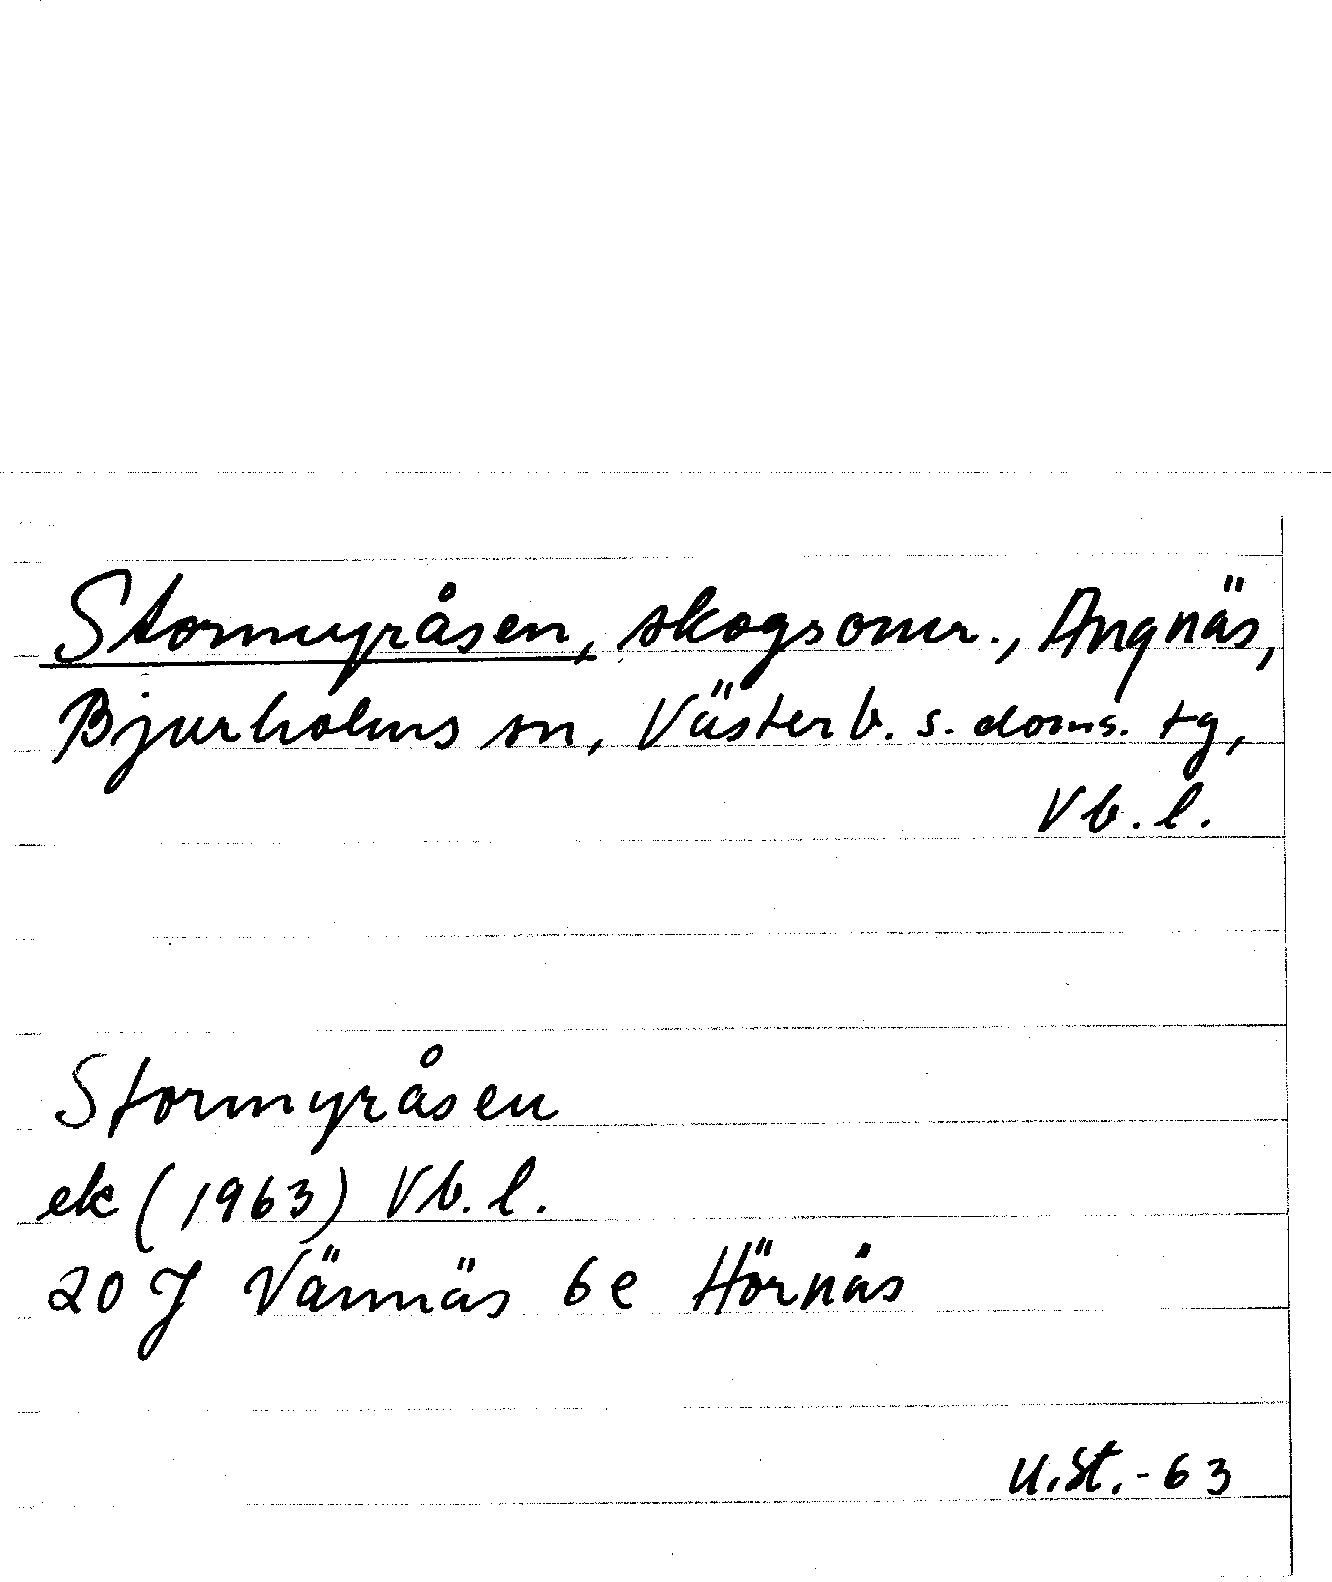 Stormyråsen, skogsomr., Angnäs,
Bjurholms sn, Västerb. s. doms. tg,
Vb. l.
Stormyråsen
ek (1963) Vb. l.
20 J Vännäs 6e Hörnås
U.St.-63